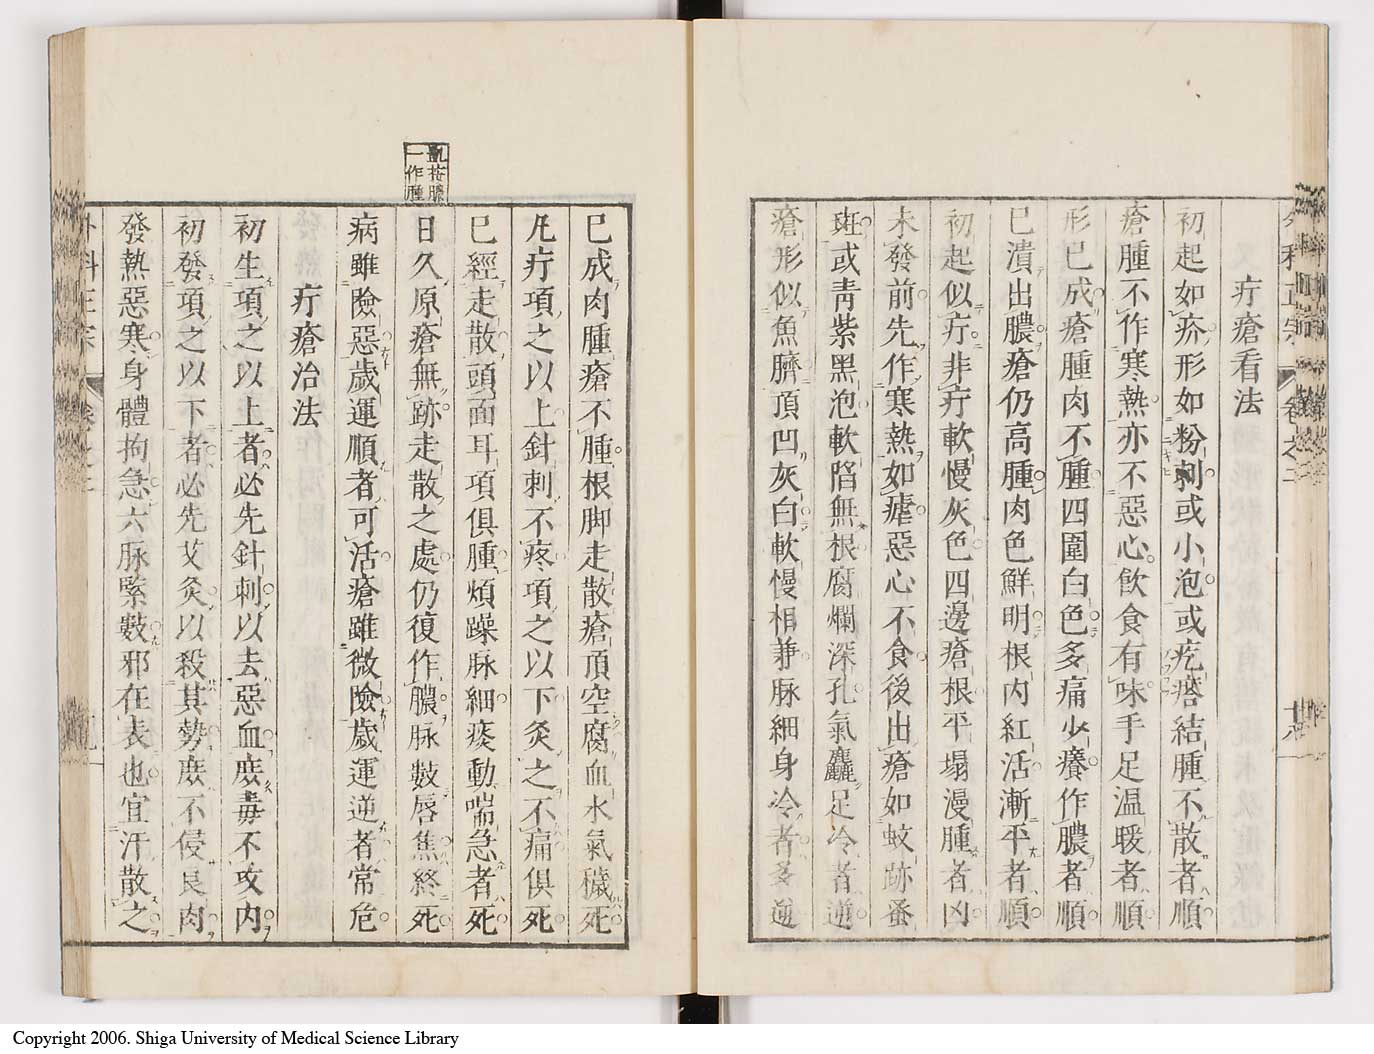 疔瘡看法
初起如疥形如粉刺或小泡或疙瘩結腫不散者順
瘡腫不作寒熱亦不惡心飲食有味手足温暖者順
形已成瘡腫肉不腫四圍白色多痛少癢作膿者順
已潰出膿瘡仍高腫肉色鮮明根内紅活漸平者順
初起似疔非疔軟慢灰色四邊瘡根平塌漫腫者凶
未發前先作寒熱如瘧惡心不食後出瘡如蚊跡蚤
斑或青紫黑泡軟陷無根腐爛深孔氣麤足冷者逆
瘡形似魚臍頂凹灰白軟慢相兼脉細身冷者多逆
已成肉腫瘡不腫根脚走散瘡頂空腐血水氣穢死
凡疔項之以上針刺不疼項之以下灸之不痛俱死
已經走散頭面耳項俱腫煩躁脉細痰動喘急者死
凱按膿
一作腫
日久原瘡無跡走散之處仍復作膿脉數唇焦終死
病雖險惡歲運順者可活瘡雖微險歲運逆者常危
疔瘡治法
初生項之以上者必先針刺以去惡血庶毒不攻内
初發項之以下者必先艾灸以殺其勢庶不侵良肉
發熱惡寒身體拘急六脉緊數邪在表也宜汗散之
外科正宗
Copyright 2006. Shiga University of Medical Science Library